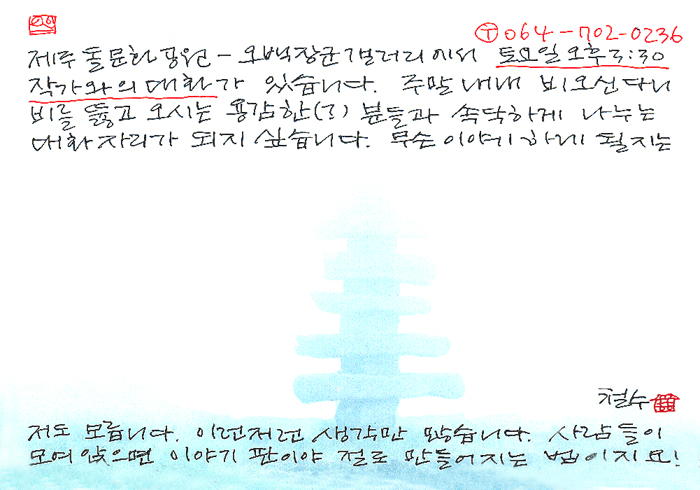 Ⓣ064-702-0236
제주 돌문화공원 - 오백장군갤러리에서 토요일 오후 3:30
작가와의 대화가 있습니다. 주말 내내 비오신다니
비를 뚫고 오시는 용감한(?) 분들과 속닥하게 나누는
대화자리가 되지 싶습니다. 무슨 이야기 하게 될지는
철수
저도 모릅니다. 이런저런 생각만 많습니다. 사람들이
모여 앉으면 이야기 판이야 절로 만들어지는 법이지요!